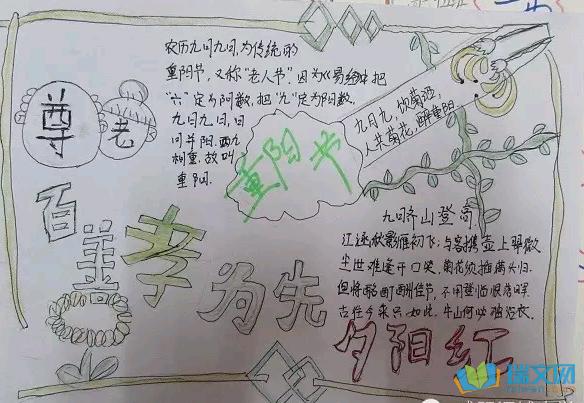 农历九月九日,为传统的
重阳节,又称"老人节"。因为《易经》中把
"六"定为阴数,把"九"定为阳数,
九月九日,日
月并阳,两九
相重,故叫
重阳.
尊
老
重阳节
九月九,饮菊酒,
人共菊花,醉重阳
百善孝为先
九日齐山登高
江涵秋影雁初飞,与客携壶上翠微
尘世难逢开口笑,菊花须插满头归.
但将酩酊酬佳节,不用登临恨落晖.
古往今来只如此,牛山何必独沾衣.
夕阳红
瑞文网